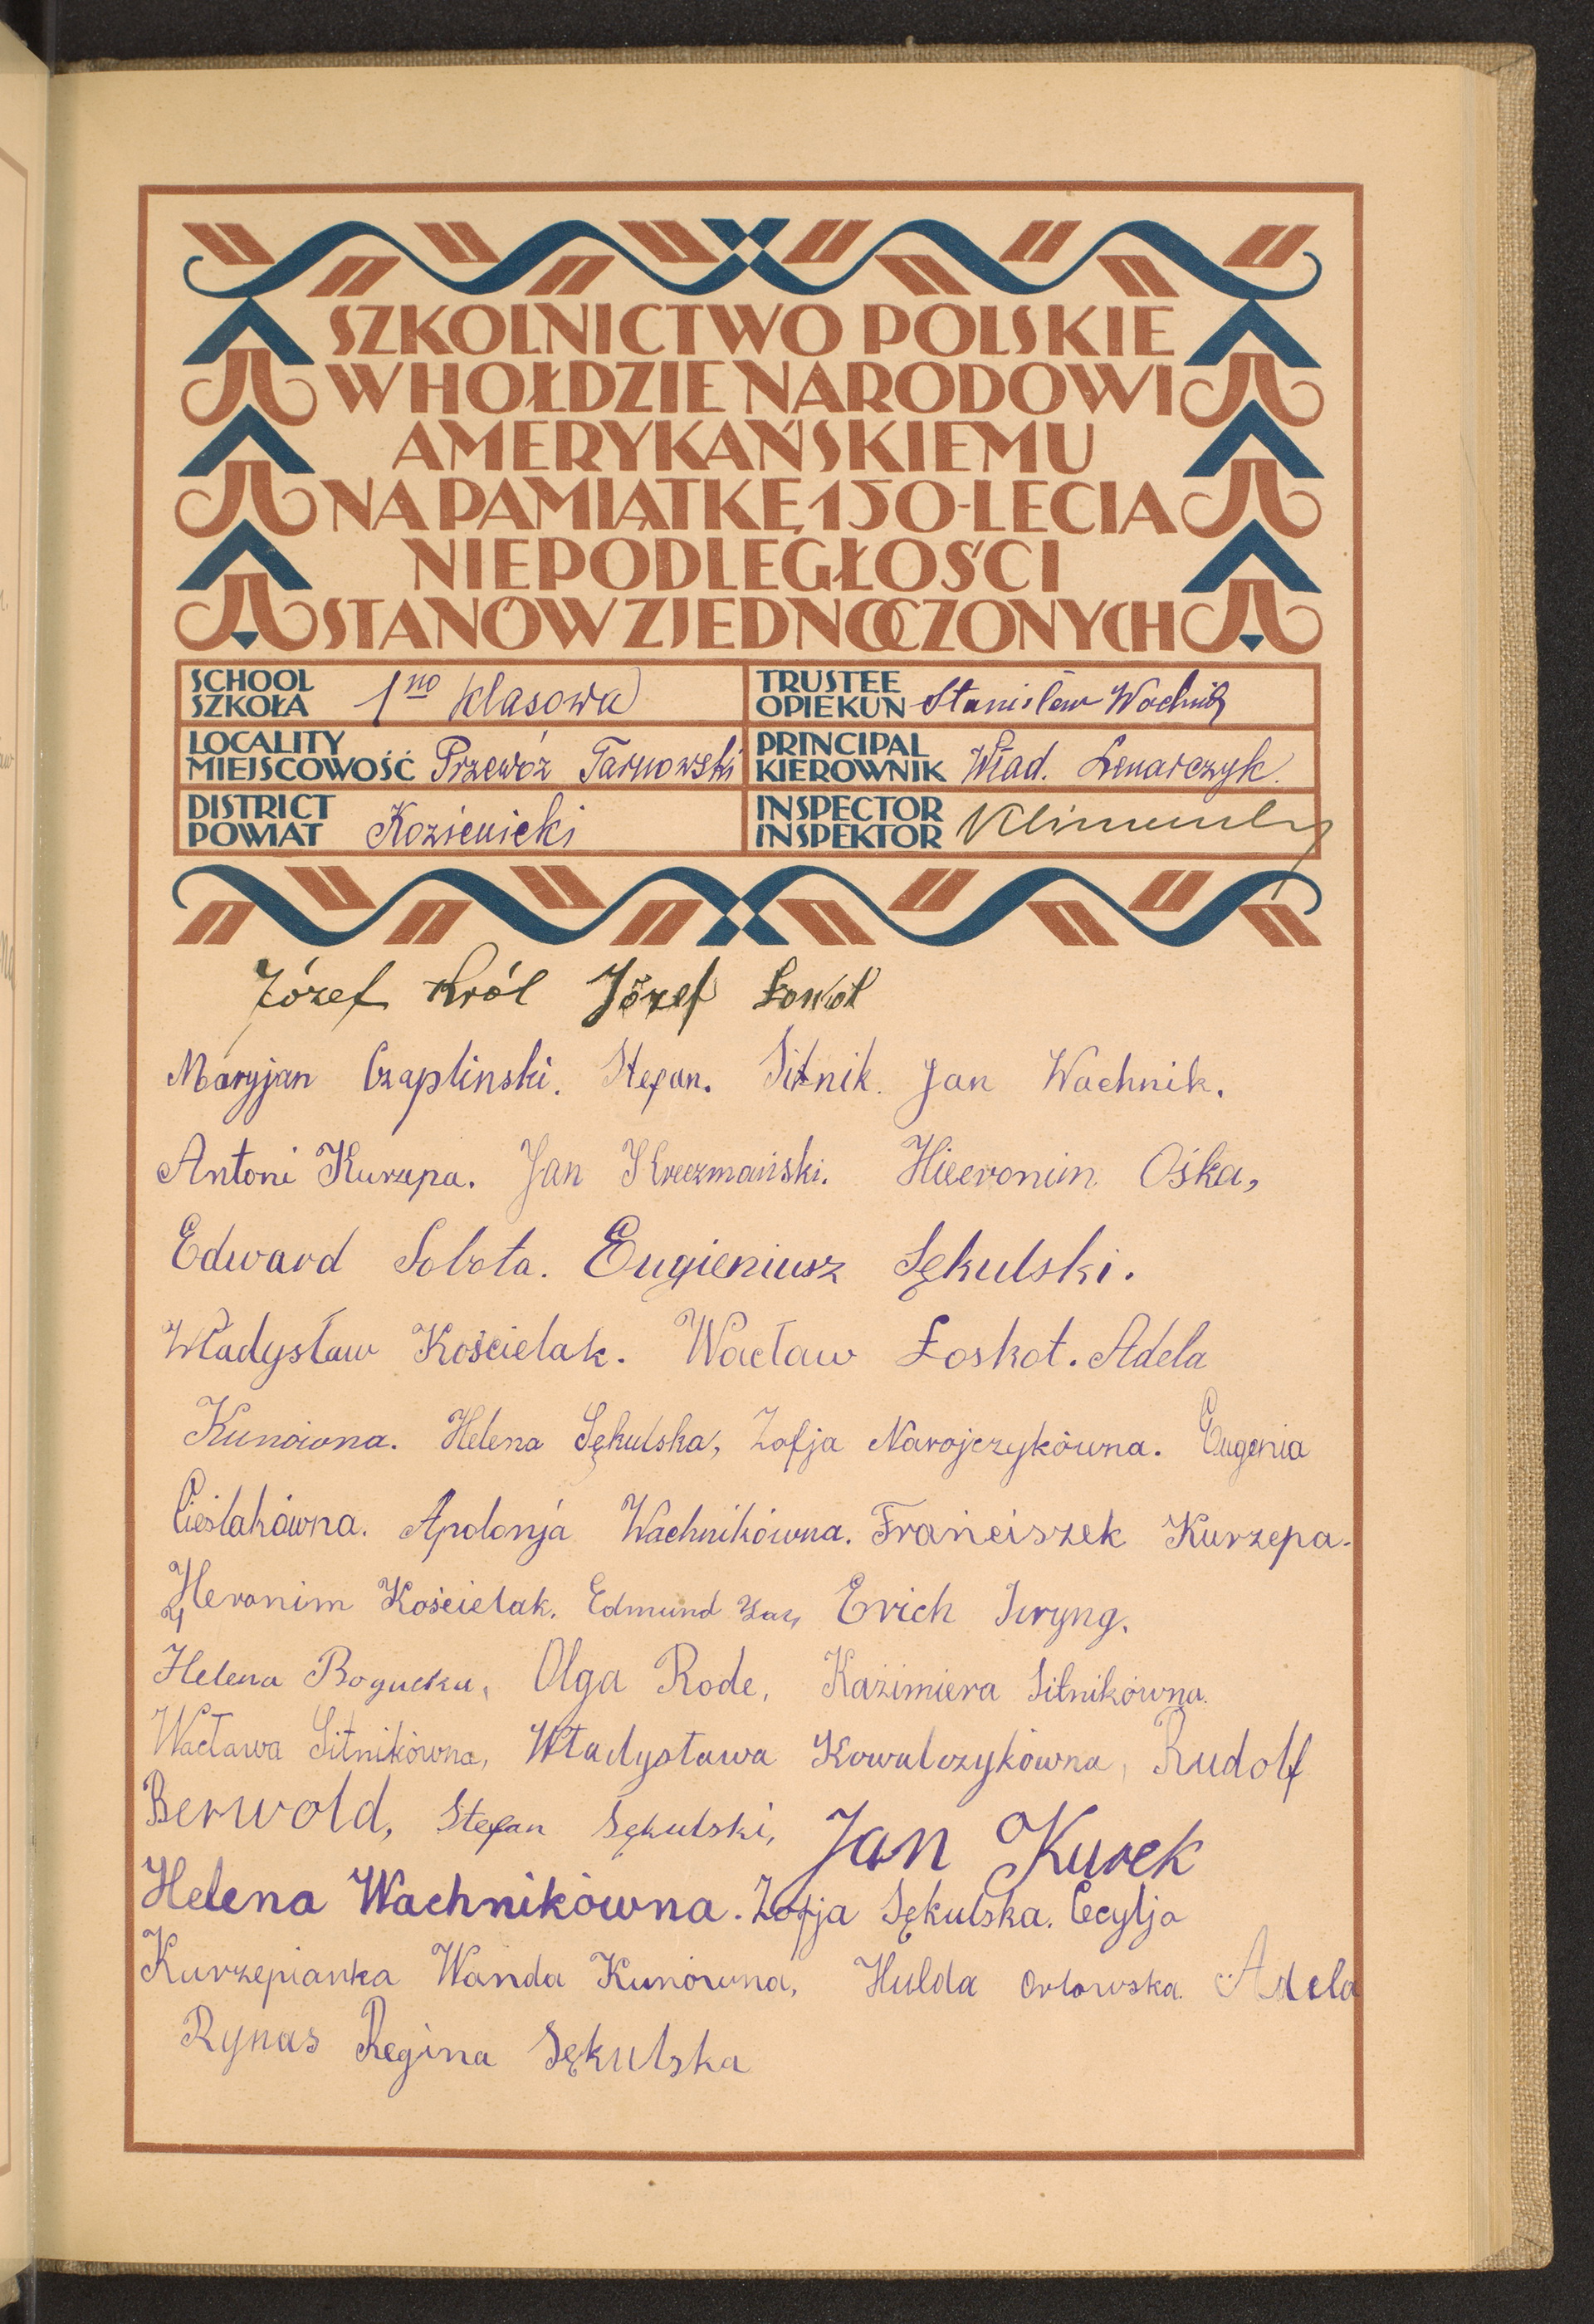 SZKOLNICTWO POLSKIE
W HOŁDZIE NARODOWI
AMERYKAŃSKIEMU
NA PAMIĄTKĘ 150-LECIA
NIEPODLEGŁOŚCI
STANÓW ZJEDNOCZONYCH
SCHOOL
SZKOŁA 1no klasowa
TRUSTEE
OPIEKUN Stanisław Wachnik
LOCALITY
MIEJSCOWOŚĆ Przewóz Tarnowski
PRINCIPAL
KIEROWNIK Wład. Lenarczyk.
DISTRICT
POWIAT Kozienicki
INSPECTOR
INSPEKTOR
Józef Król Józef
Maryjan Czaplinski. Stefan. Sitnik. Jan Wachnik.
Antoni Kurzepa. Jan Kreczmański. Hieeronim Ośka,
Edward Sobota. Eugieniusz Sękulski.
Władysław Kościelak. Wacław Łoskot. Adela
Kunówna. Helena Sękulska, Zofja Narojczykówna. Eugenia
Cieślakówna. Apolonja Wachnikówna. Franciszek Kurzepa.
Heronim Kościelak. Edmund Erich Iwryng.
Helena Bogucka, Olga Rode, Kazimiera Sitnikówna.
Wacława Sitnikówna, Władysława Kowalczykówna, Rudolf
Berwold, Stefan Sękulski, Jan Kurek
Helena Wachnikówna. Zofja Sękulska. Cecylja
Kurzepianka Wanda Kunówna, Hulda Orłowska. Adela
Rynas Regina Sękulska